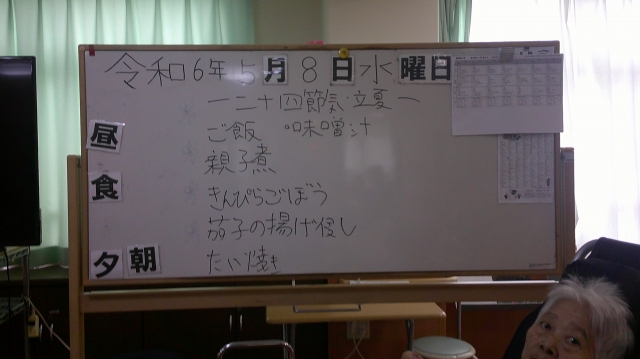 令和6年5月8日水曜日
ー二十四節気:立夏ー
ご飯 味噌汁
親子煮
きんぴらごぼう
茄子の揚げ浸し
たい焼き
昼
食
夕朝